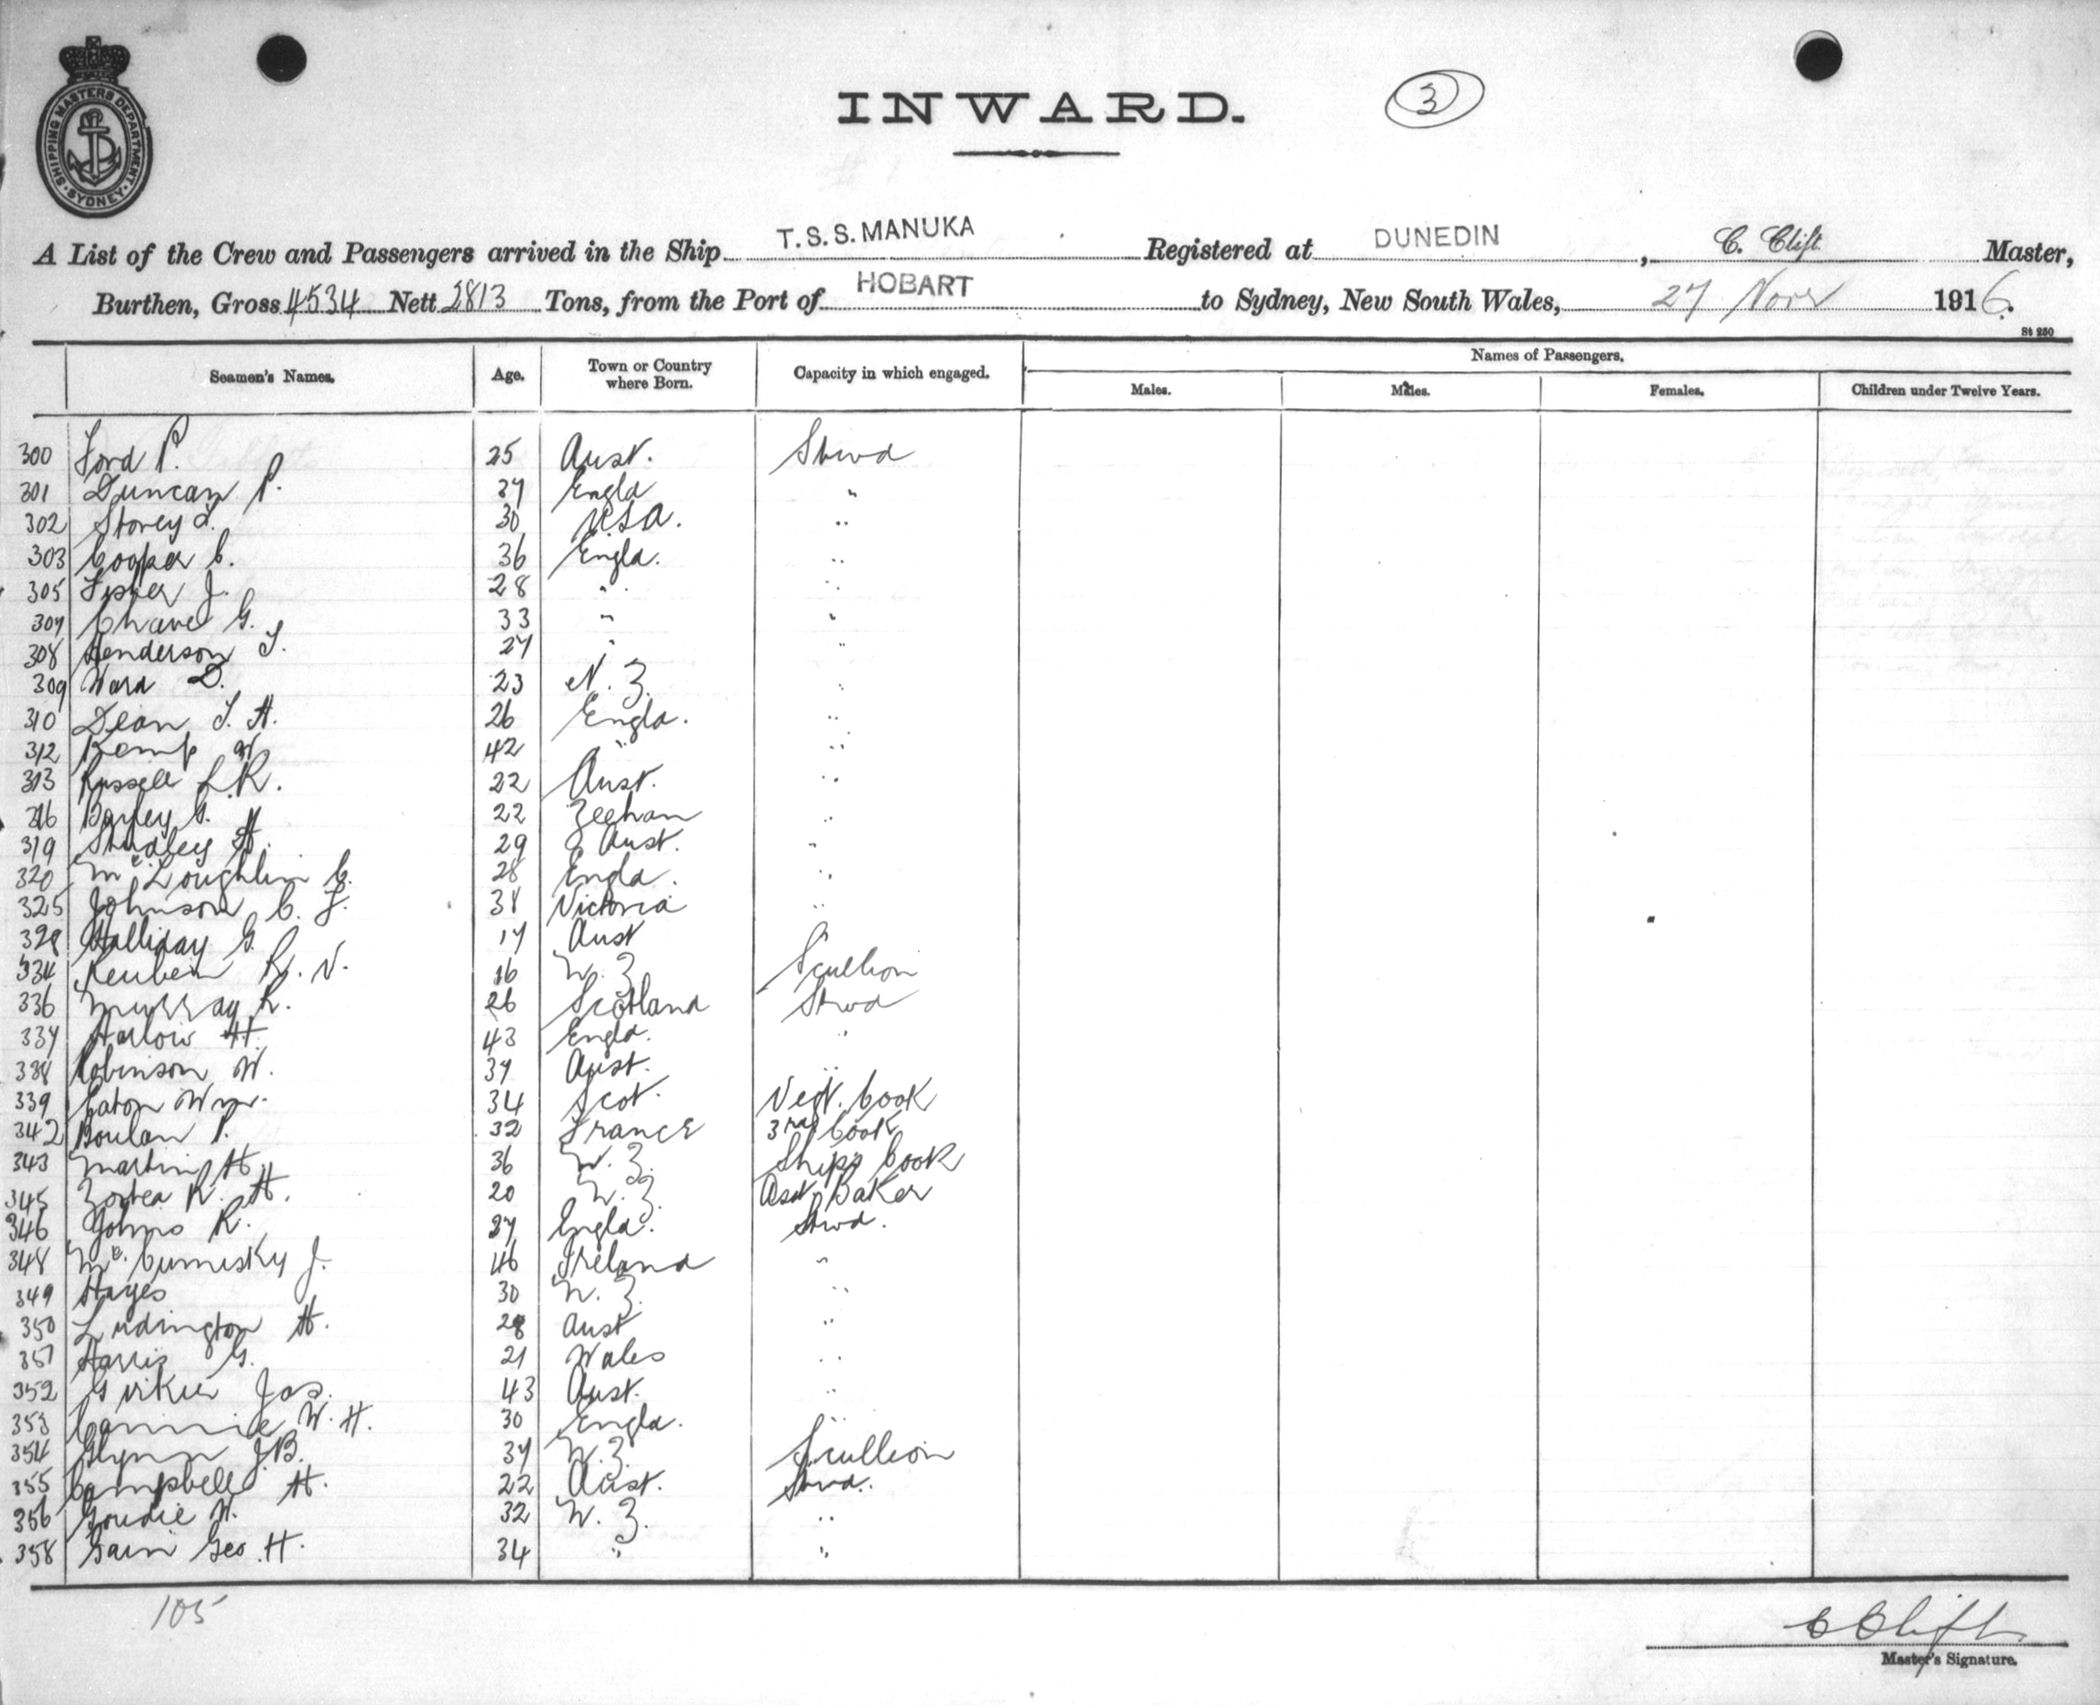 SHIPPING MASTERS DEPARTMENT. SYDNEY
INWARD.
3
A List of the Crew and Passengers arrived in the Ship T.S.S. MANUKA Registered at DUNEDIN, C. Clift Master,
Burthen, Gross 4534 Nett 2813 Tons, from the Port of HOBART to Sydney, New South Wales, 27 Novr 1916.
St 250
Seamen's Names. Age. Town or Country where Born. Capacity in which engaged. Names of Passengers.
Males. Males. Females. Children under Twelve Years.
300 Ford P. 25 Aust. Stwd
301 Duncan P. 37 Engla "
302 Storey J. 30 USA. "
303 Cooper C. 36 Engla. "
305 Fisher J. 28 " "
307 Chave G. 33 " "
308 Henderson T. 27 " "
309 Ward D. 23 N.Z. "
310 Dean T. H. 26 Engla. "
312 Kemp W. 42 " "
313 Russell L.R. 22 Aust. "
316 Bayley G. 22 Zeehan "
319 Studley H. 29 Aust. "
320 McLoughlin C. 28 Engla. "
325 Johnson C. F. 38 Victoria "
328 Halliday G. 17 Aust
334 Reuben R. V. 16 N.Z. Scullion
336 Murray R. 26 Scotland Stwd
337 Harlow H. 43 Engla. "
338 Robinson W. 37 Aust. "
339 Eaton Wm. 34 Scot. Vegt. Cook
342 Boulan P. 32 France 3rd Cook
343 Martin H. 36 N.Z. Ships Cook
345 Zortea R. H. 20 N.Z. Asst Baker
346 Johns R. 37 Engla. Stwd.
348 McCumisky J. 46 Ireland "
349 Hayes 30 N.Z. "
350 Ludington H. 28 Aust "
351 Harris G. 21 Wales "
352 Jas. 43 Aust. "
353 W. H. 30 Engla. "
354 Glynn J.B. 37 N.Z. Scullion
355 Campbell H. 22 Aust. Stwd.
356 Goudie W. 32 N.Z. "
358 Gain Geo. H. 34 " "
105
C Clift
Master's Signature.